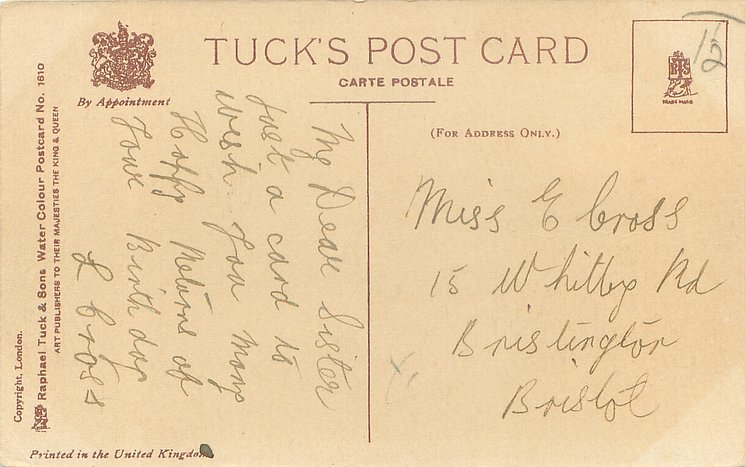 TUCK'S POST CARD
CARTE POSTALE
By Appointment
(FOR ADDRESS ONLY.)
RTS
TRADE MARK
12
Copyright, London.
Raphael Tuck & Sons Water Colour Postcard No. 1610
ART PUBLISHERS TO THEIR MAJESTIES THE KING & QUEEN
My Dear Sister
Just a card to
wish you many
Happy Returns of
Your Birthday
L Cross
Miss E Cross
15 Whitby Rd
Brislington
Bristol
Printed in the United Kingdom